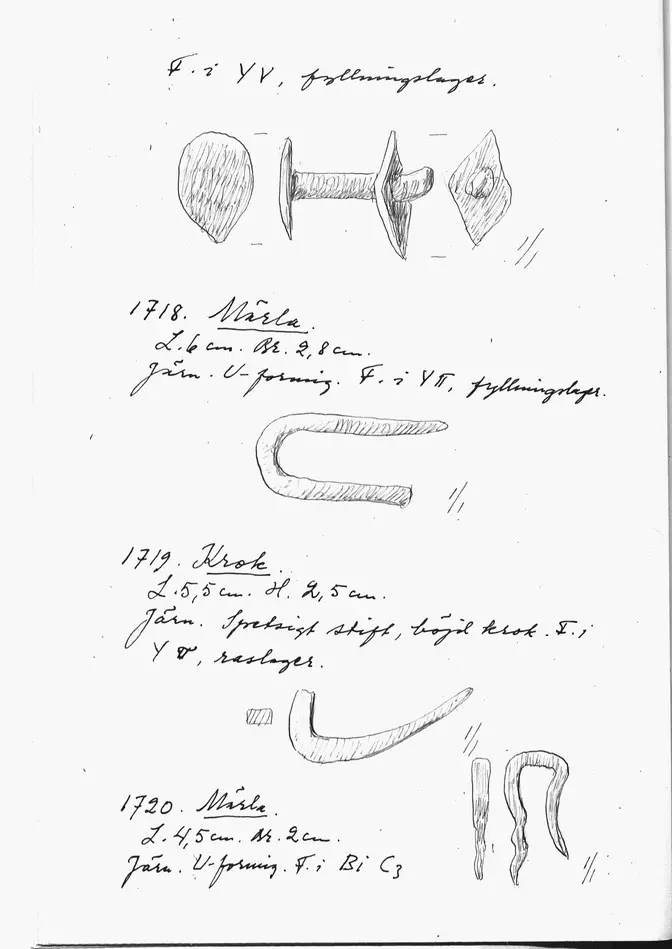 F. i YV, fyllningslager.
1/1
1718. Märla.
L. 6 cm. Br. 2,8 cm.
Järn. U-formig. F. i YTT, fyllningslager.
1/1
1719. Krok.
L. 5,5 cm. H. 2,5 cm.
Järn. Spetsigt stift, böjd krok. F. i
Y, raslager.
1/1
1720. Märla.
L. 4,5 cm. Br. 2 cm.
Järn. U-formig. F. i Bi C3
1/1